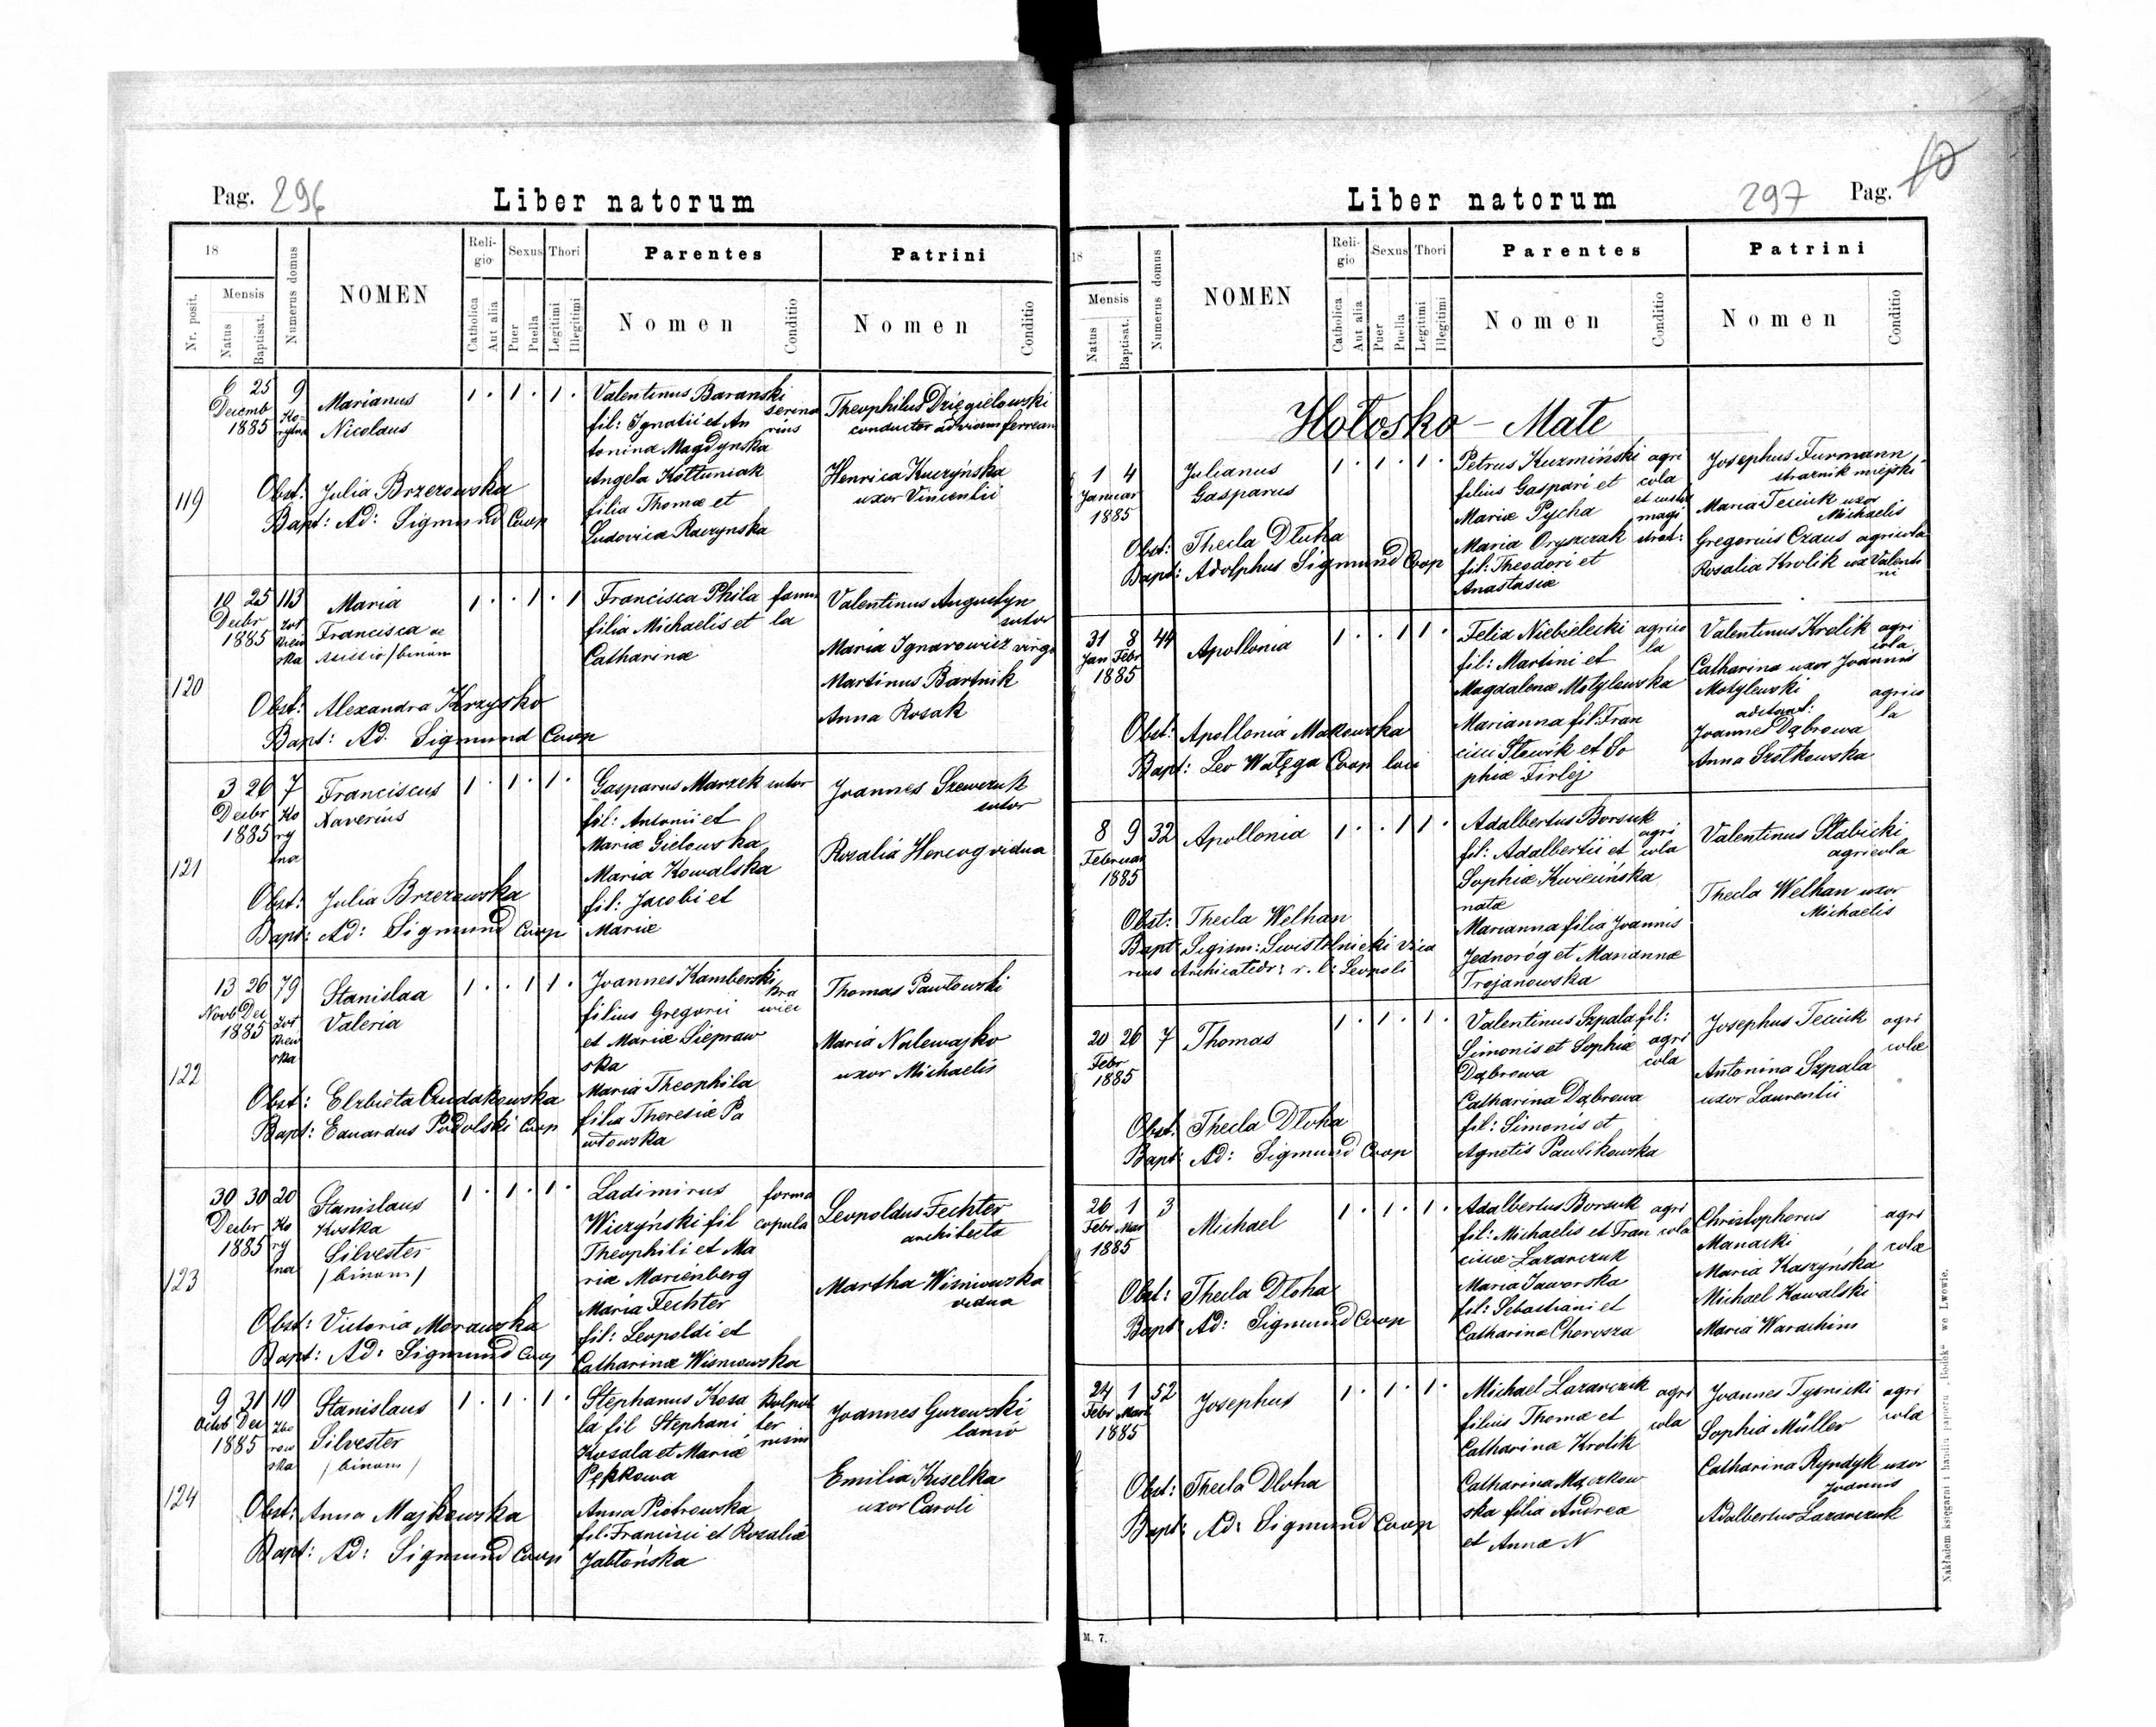 Pag. 296
Liber natorum
18
Nr. posit.
Mensis
Natus
Baptisat.
Numerus domus
NOMEN
Religio
Catholica
Aut alia
Sexus
Puer
Puella
Thori
Legitimi
Illegitimi
Parentes
Nomen
Conditio
Patrini
Nomen
Conditio
119
6 25 9
Decemb
1885
Marianus
Nicolaus
1 . 1 . 1 .
Obst: Julia Brzezowska
Bapt: Ad: Sigmund Coop
Valentinus Baranski
fil: Ignatii et An
toninæ Magdynska
Angela Kołtuniak
filia Thomæ et
Ludovica Raczynska
Theophilus Dzięgielowski
conductor ad viam ferream
Henrica Kuczyńska
uxor Vincentii
120
10 25 113
Decbr
1885
Maria
Francisca de
Assissio /binom
1 . . 1 . 1
Obst: Alexandra Krzysko
Bapt: Ad. Sigmund Coop
Francisca Phila famu
filia Michaelis et la
Catharinæ
Valentinus Augustyn
sutor
Maria Ignarowicz virgo
Martinus Bartnik
Anna Rosak
121
3 26 7
Decbr Ko
1885 ry
tna
Franciscus
Xaverius
1 . 1 . 1 .
Obst: Julia Brzezowska
Bapt: Ad: Sigmund Coop
Gasparus Marzek sutor
fil: Antonii et
Mariæ Gielowska
Maria Kowalska
fil: Jacobi et
Mariæ
Joannes Szewczuk
sutor
Rozalia Hercog vidua
122
13 26 79
Novb Dec
1885
Stanislaa
Valeria
1 . . 1 1 .
Obst: Elzbieta Czudakowska
Bapt: Eduardus Podolski Coop
Joannes Kamberski
filius Gregorii
et Mariæ Siepraw
ska
Maria Theophila
filia Theresiæ Pa
włowska
Thomas Pawłowski
Maria Nalewajko
uxor Michaelis
123
30 30 20
Decbr Ko
1885 ry
tna
Stanislaus
Kostka
Silvester
/binom/
1 . 1 . 1 .
Obst: Victoria Morawska
Bapt: Ad: Sigmund Coop
Ladimirus forma
Wiczyński fil copula
Theophili et Ma
riæ Marienberg
Maria Fechter
fil: Leopoldi et
Catharinæ Wisniowska
Leopoldus Fechter
architecta
Martha Wisniowska
vidua
124
9 31 10
Octob Dec
1885
Stanislaus
Silvester
/binom/
1 . 1 . 1 .
Obst: Anna Majkowska
Bapt: Ad: Sigmund Coop
Stephanus Kosa
la fil Stephani
Kosala et Mariæ
Pękkowa
Anna Piotrowska
fil. Francisci et Rozaliæ
Jabłońska
Joannes Gurowski
lanio
Emilia Kiselka
uxor Caroli
Liber natorum
297 Pag. 10
18
Mensis
Natus
Baptisat.
Numerus domus
NOMEN
Religio
Catholica
Aut alia
Sexus
Puer
Puella
Thori
Legitimi
Illegitimi
Parentes
Nomen
Conditio
Patrini
Nomen
Conditio
Hołosko - Małe
1 4
Januar
1885
Julianus
Gasparus
1 . 1 . 1 .
Obst: Thecla Dłuha
Bapt: Adolphus Sigmund Coop
Petrus Kuzmiński agri
filius Gaspari et cola
Mariæ Pycha magi
Maria Oryszczak strat:
fil: Theodori et
Anastasiæ
Josephus Furmann
strażnik miejski
Maria Teciuk uxor
Michaelis
Gregorius Czaus agricola
Rosalia Krolik ux Valenti
ni
31 8 44
Jan Febr
1885
Apollonia
1 . . 1 1 .
Obst: Apollonia Makowska
Bapt: Leo Wałęga Coop loci
Felix Niebielecki agrico
fil: Martini et la
Magdalenæ Motylewska
Marianna fil: Fran
cisci Słowik et So
phiæ Firlej
Valentinus Krolik agri
cola
Catharina uxor Joannis
Motylewski agrico
la
Joannes Dąbrowa
Anna Szotkowska
8 9 32
Februar
1885
Apollonia
1 . . 1 1 .
Obst: Thecla Welhan
Bapt: Sigism: Swistelnicki Vica
rius Archicatedr: r. l: Leopoli
Adalbertus Borsuk
agri
fil: Adalbertii et cola
Sophiæ Kwicińska
natæ
Marianna filia Joannis
Jednoróg et Mariannæ
Trojanowska
Valentinus Słabicki
agricola
Thecla Welhan uxor
Michaelis
20 26 7
Febr
1885
Thomas
1 . 1 . 1 .
Obst: Thecla Dłoha
Bapt: Ad: Sigmund Coop
Valentinus Szpala fil:
Simonis et Sophiæ agri
Dąbrowa cola
Catharina Dąbrowa
fil: Simonis et
Agnetis Pawlikowska
Josephus Teciuk agri
colæ
Antonina Szpala
uxor Laurentii
26 1 3
Febr Mar
1885
Michael
1 . 1 . 1 .
Obst: Thecla Dłoha
Bapt: Ad: Sigmund Coop
Adalbertus Borsuk agri
fil: Michaelis et Fran cola
ciscæ Lazarczuk
Maria Jaworska
fil: Sebastiani et
Catharinæ Cherosza
Christophorus agri
Manacki colæ
Maria Kaszyńska
Michael Kowalski
Maria Warachim
24 1 52
Febr Mart
1885
Josephus
1 . 1 . 1 .
Obst: Thecla Dloha
Bapt: Ad: Sigmund Coop
Michael Lazarczuk agri
filius Thomæ et cola
Catharinæ Krolik
Catharina Mączkow
ska filia Andreæ
et Annæ N
Joannes Tysnicki agri
Sophia Müller colæ
Catharina Ryndyk uxor
Joannis
Adalbertus Lazarczuk
M. 7.
Nakładem księgarni i handlu papieru „Bodek" we Lwowie.